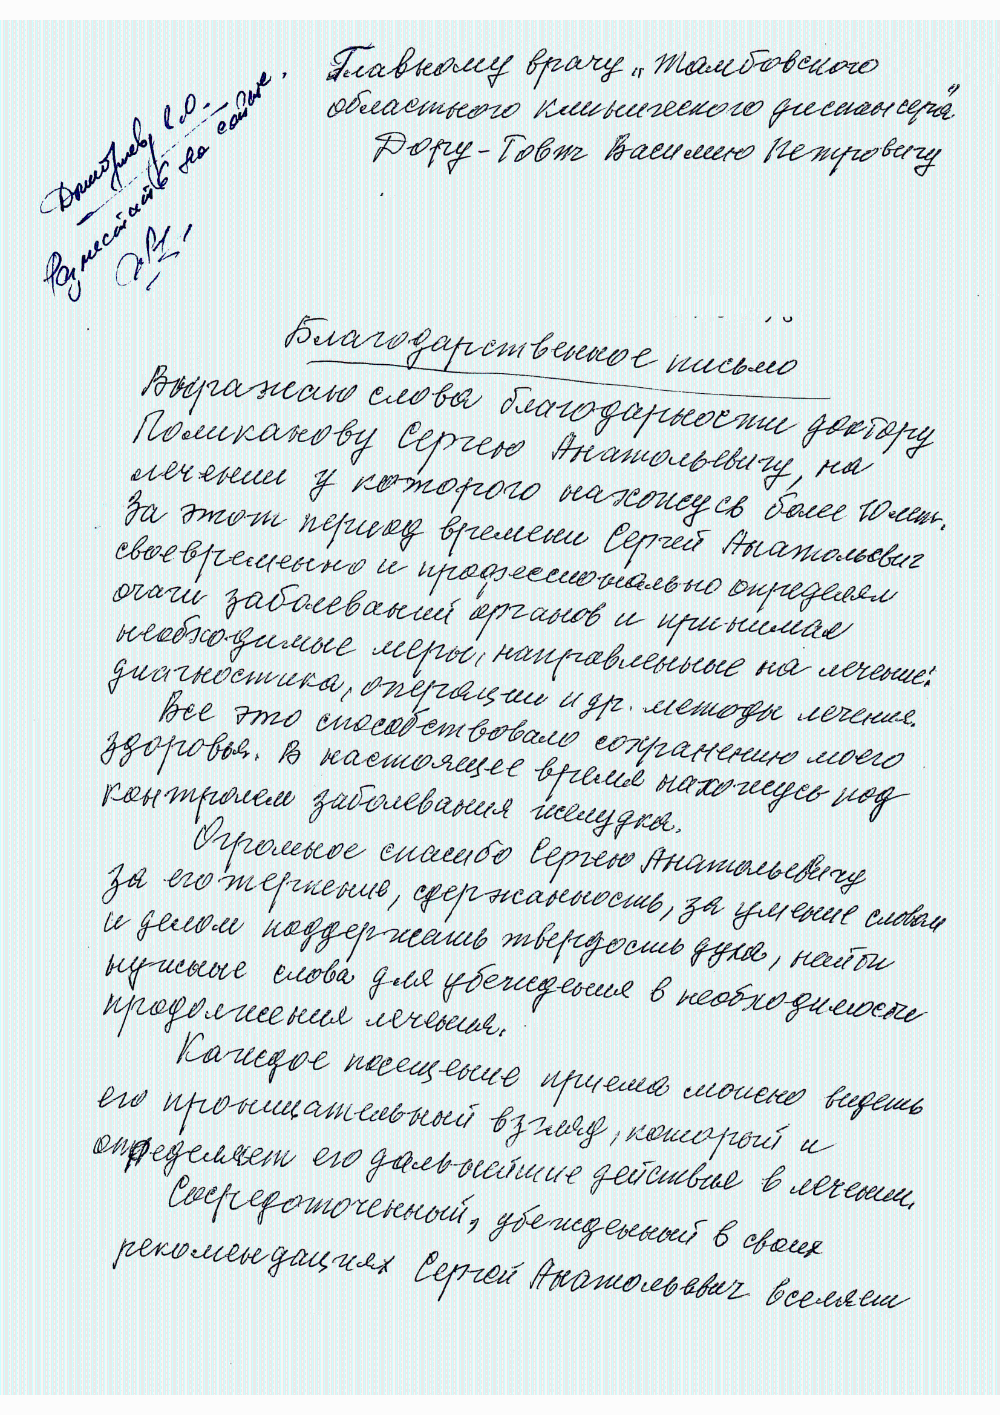 Главному врачу „Тамбовского
областного клинического диспансера"
Дору-Товт Василию Петровичу
Разместить на сайте.
Благодарственное письмо
Выражаю слова благодарности доктору
Поликанову Сергею Анатольевичу, на
лечении у которого нахожусь более 10 лет.
За этот период времени Сергей Анатольевич
своевременно и профессионально определял
очаги заболеваний органов и принимал
необходимые меры, направленные на лечение:
диагностика, операции и др. методы лечения.
Все это способствовало сохранению моего
здоровья. В настоящее время нахожусь под
контролем заболевания желудка.
Огромное спасибо Сергею Анатольевичу
за его терпение, сдержанность, за умение словом
и делом поддержать твердость духа, найти
нужные слова для убеждения в необходимости
продолжения лечения.
Каждое посещение приема можно видеть
его проницательный взгляд, который и
определяет его дальнейшие действие в лечении.
Сосредоточенный, убежденный в своих
рекомендациях Сергей Анатольевич вселяет